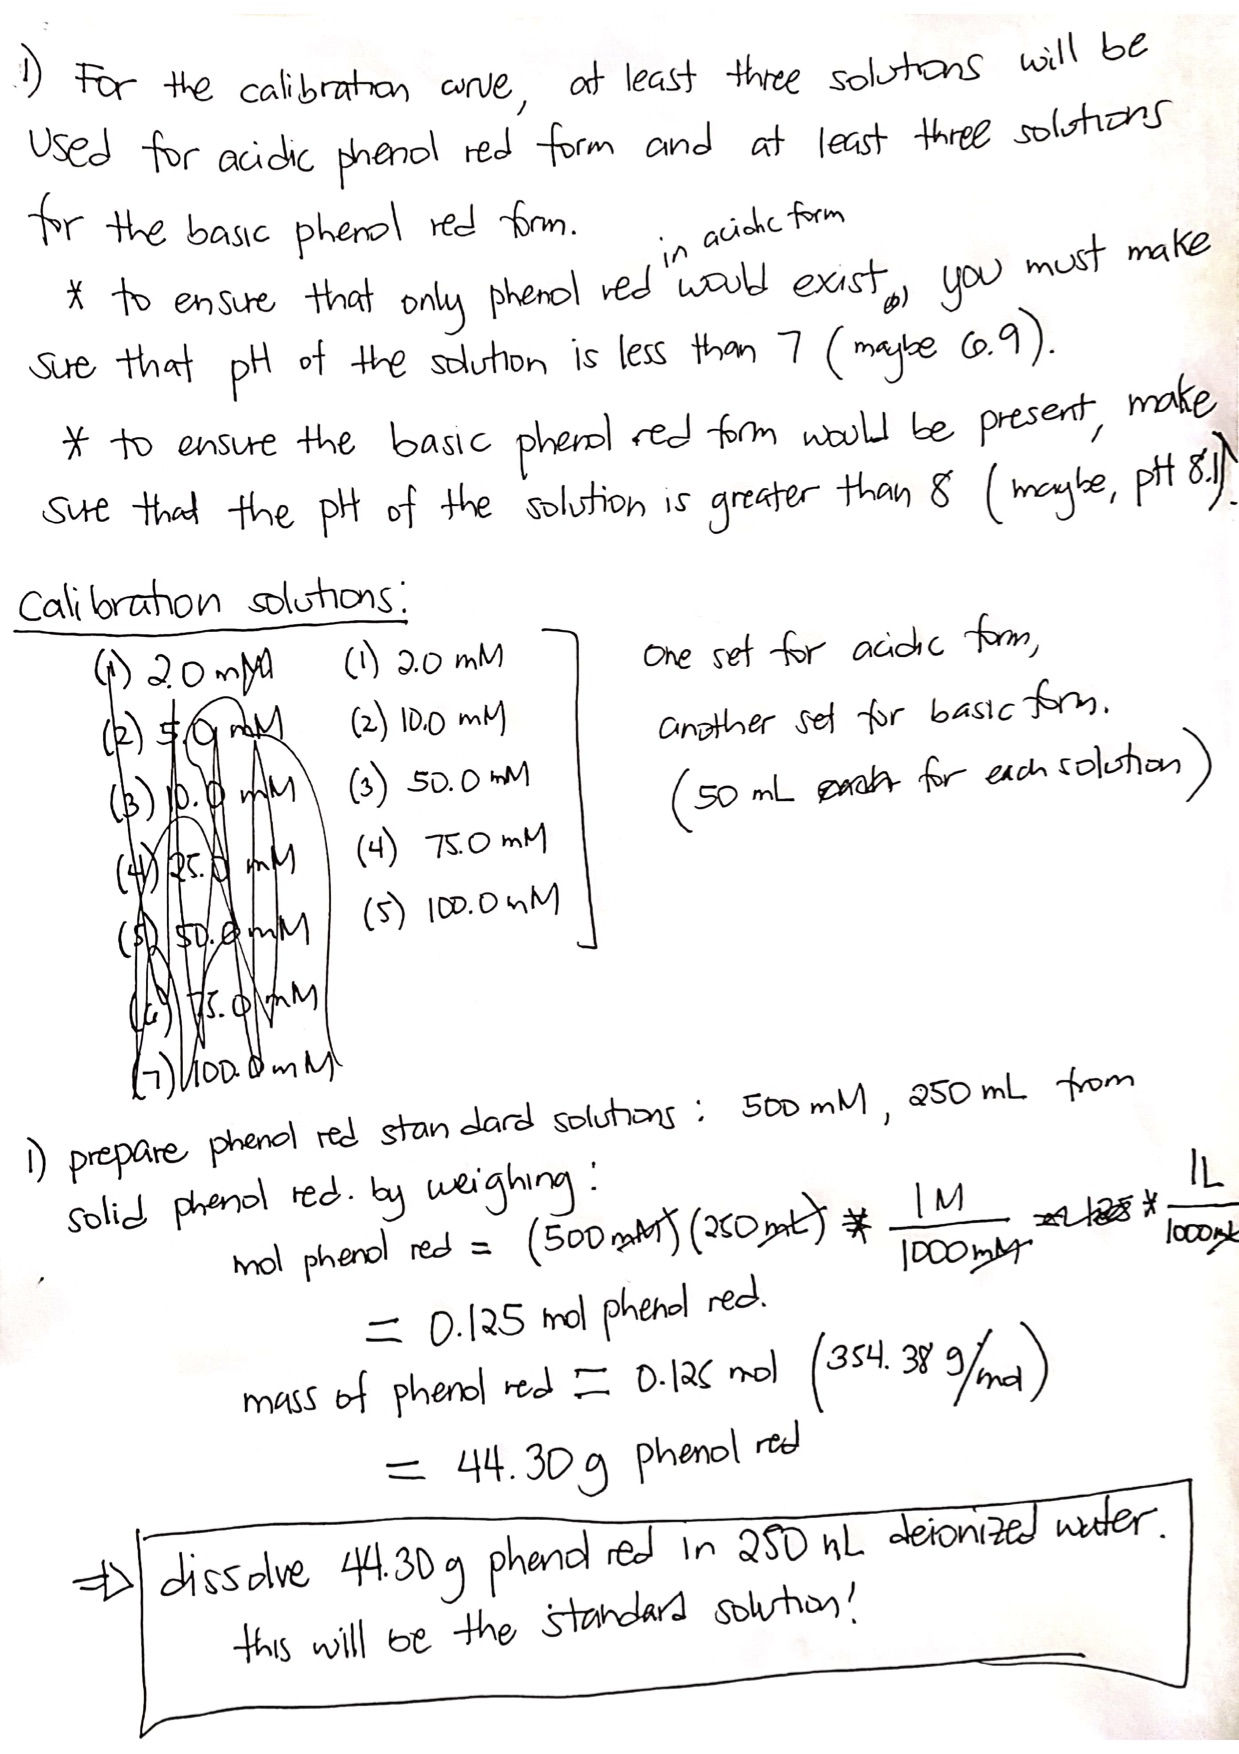 1) For the calibration curve, at least three solutions will be
used for acidic phenol red form and at least three solutions
for the basic phenol red form.
in acidic form
* to ensure that only phenol red would exist, you must make
sure that pH of the solution is less than 7 (maybe 6.9).
* to ensure the basic phenol red form would be present, make
sure that the pH of the solution is greater than 8 (maybe, pH 8.1).
Calibration solutions:
(1) 2.0 mM
(2) 5.0 mM
(3) 10.0 mM
(4) 25.0 mM
(5) 50.0 mM
(6) 75.0 mM
(7) 100.0 mM
(1) 2.0 mM
(2) 10.0 mM
(3) 50.0 mM
(4) 75.0 mM
(5) 100.0 mM
one set for acidic form,
another set for basic form.
(50 mL each for each solution)
1) prepare phenol red standard solutions: 500 mM, 250 mL from
solid phenol red. by weighing:
mol phenol red = (500 mM) (250 mL) * 1 M / 1000 mM * 1L / 1000 mL
= 0.125 mol phenol red.
mass of phenol red = 0.125 mol (354.38 g/mol)
= 44.30 g phenol red
⇒ dissolve 44.30 g phenol red in 250 mL deionized water.
this will be the standard solution!